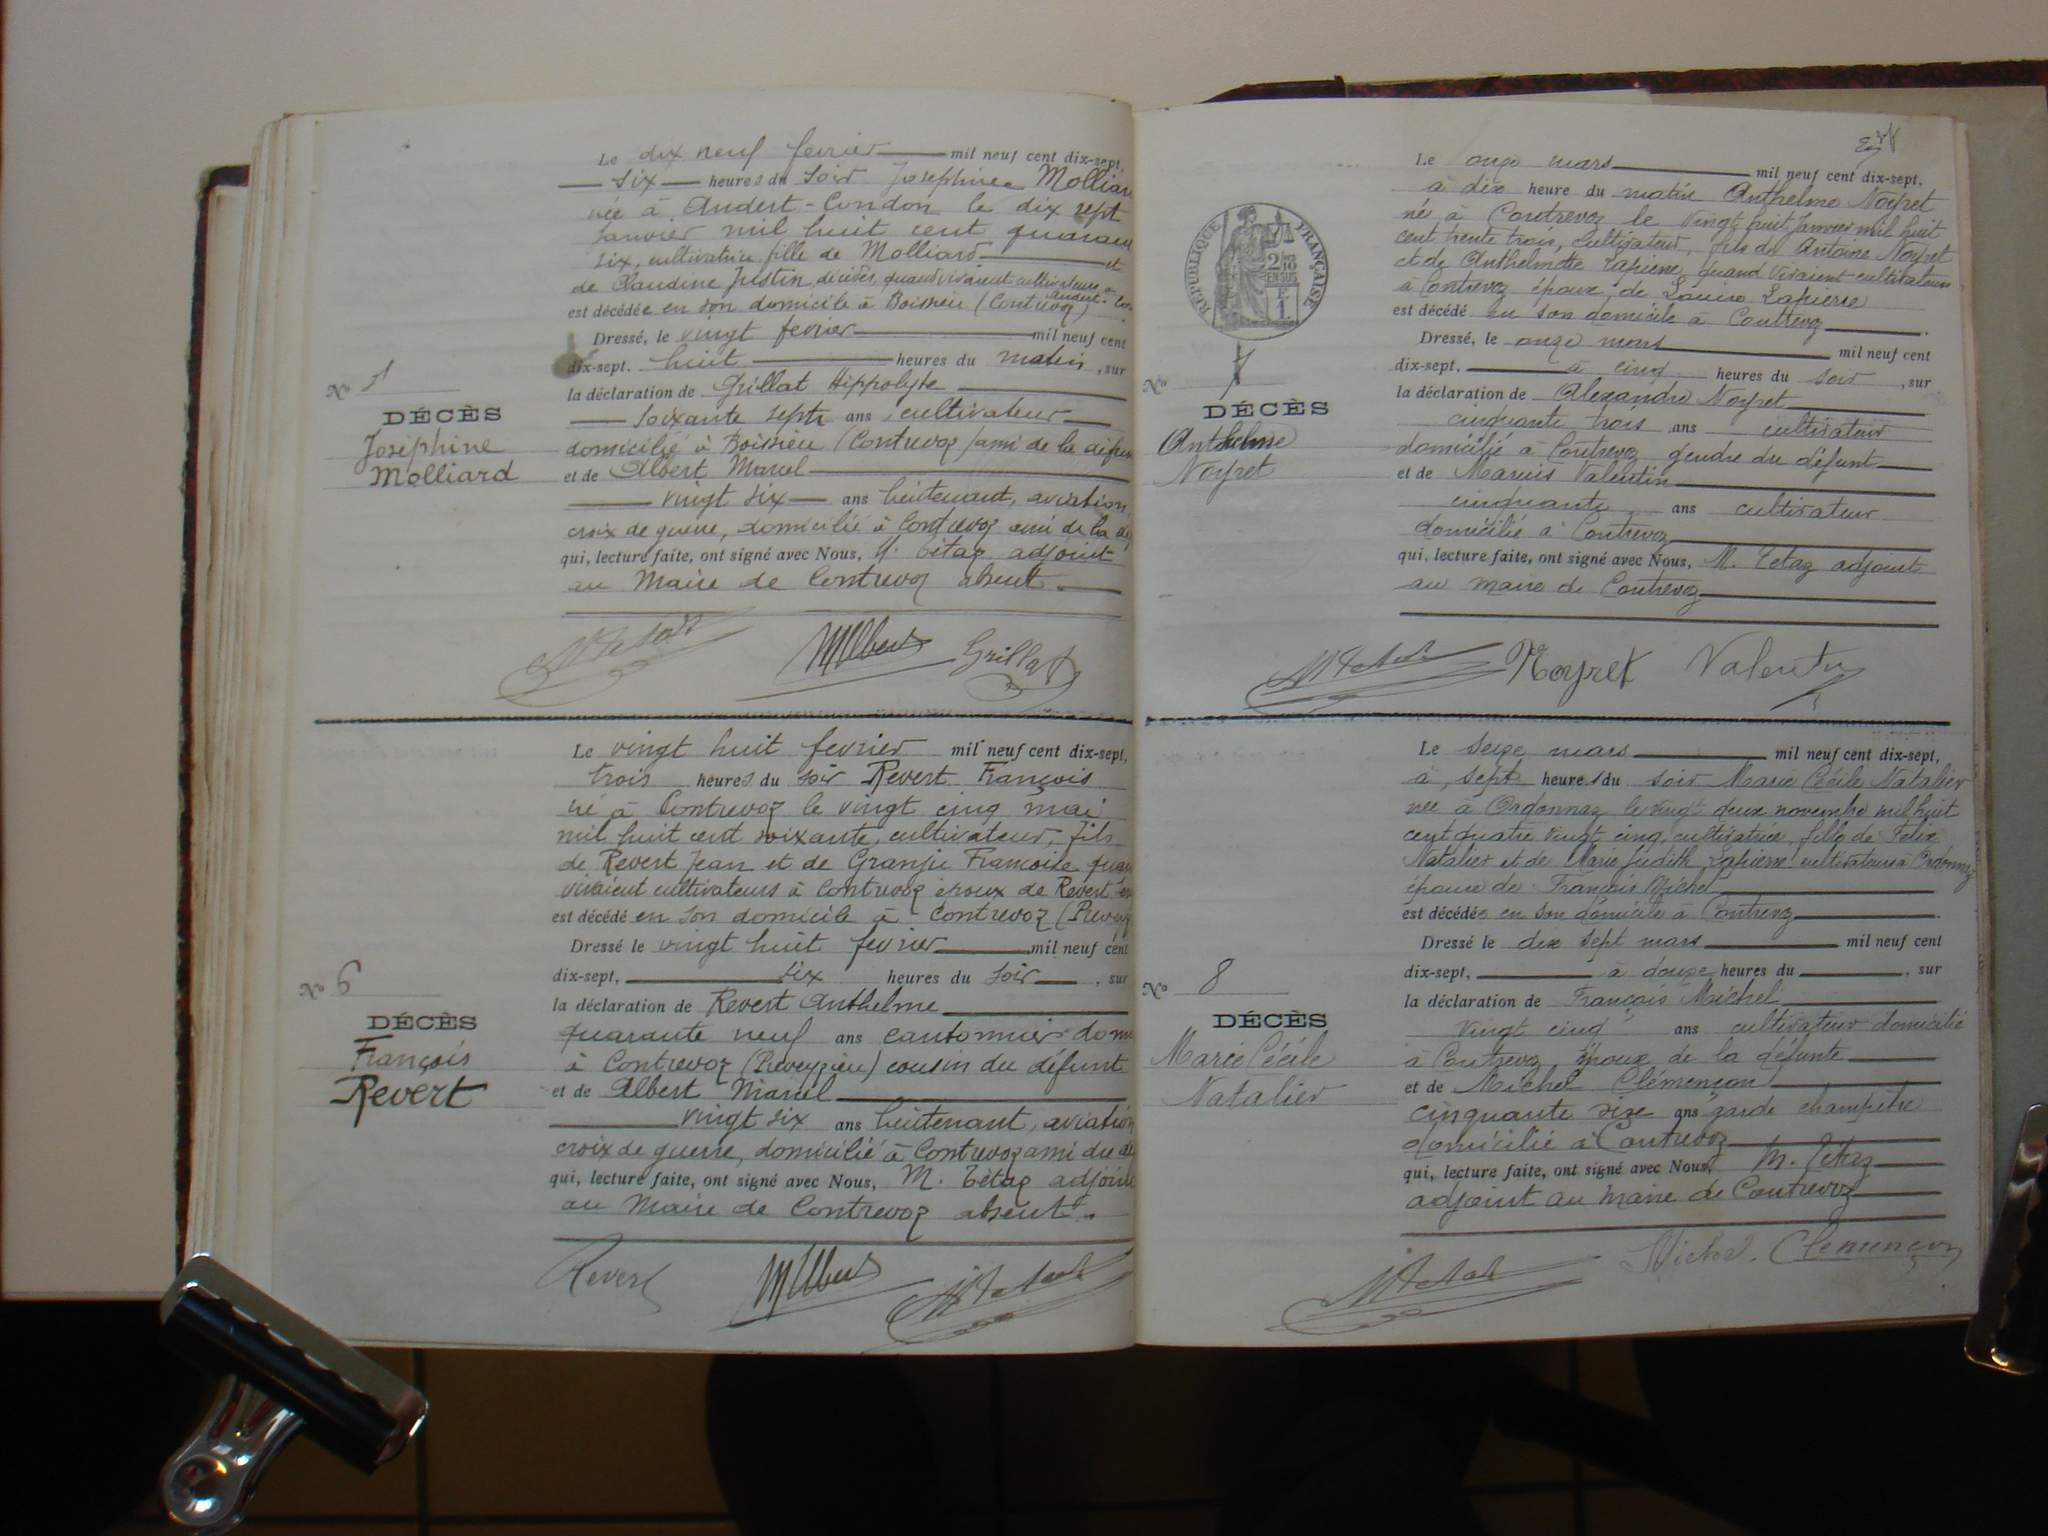 Le dix neuf fevrier mil neuf cent dix-sept,
six heures du soir Josephine Molliar
née à Andert-Condon le dix sept
Janvier mil huit cent quaran
six, cultivatrice, fille de Molliard et
de Claudine Justin, décédés, quand vivaient cultivateurs à
Andert-Con
est décédée en son domicile à Boissieu (Contrevoz)
Dressé, le vingt fevrier mil neuf cent
dix-sept. huit heures du matin, sur
la déclaration de Grillat Hippolyte
soixante sept ans, cultivateur
domicilié à Boissieu (Contrevoz) ami de la défun
et de Albert Marcel
vingt six ans lieutenant, aviation
croix de guerre, domicilié à Contrevoz ami de la dé
qui, lecture faite, ont signé avec Nous, M. Tétaz adjoint
au Maire de Contrevoz absent.
No 5
DÉCÈS
Joséphine
Molliard
MAlbert Grillat
Le vingt huit fevrier mil neuf cent dix-sept,
trois heures du soir Revert François
né à Contrevoz le vingt cinq mai
mil huit cent soixante, cultivateur, fils
de Revert Jean et de Granju Francoise quan
vivaient cultivateurs à Contrevoz époux de Revert
est décédé en son domicile à Contrevoz (Prevey
Dressé le vingt huit fevrier mil neuf cent
dix-sept, six heures du soir, sur
la déclaration de Revert Anthelme
quarante neuf ans cantonnier domi
à Contrevoz (Preveyzieu) cousin du défunt
et de Albert Marcel
vingt six ans lieutenant, aviation
croix de guerre, domicilié à Contrevoz ami du dé
qui, lecture faite, ont signé avec Nous, M. Tétaz adjoint
au Maire de Contrevoz absent.
No 6
DÉCÈS
François
Revert
Revert MAlbert
RÉPUBLIQUE FRANÇAISE
2/10 EN SUS
1 F
Le onze mars mil neuf cent dix-sept,
à dix heure du matin Anthelme Noyret
né à Contrevoz le vingt huit Janvier mil huit
cent trente trois, cultivateur, fils de Antoine Noyret
et de Anthelmette Lapierre, quand vivaient cultivateurs
à Contrevoz époux de Louise Lapierre
est décédé en son domicile à Contrevoz.
Dressé, le onze mars mil neuf cent
dix-sept, à cinq heures du soir, sur
la déclaration de Alexandre Noyret
cinquante trois ans cultivateur
domicilié à Contrevoz gendre du défunt
et de Marius Valentin
cinquante ans cultivateur
domicilié à Contrevoz
qui, lecture faite, ont signé avec Nous, M. Tétaz adjoint
au maire de Contrevoz
No 7
DÉCÈS
Anthelme
Noyret
Noyret Valentin
Le seize mars mil neuf cent dix-sept,
à sept heures du soir Marie Cécile Natalier
née à Ordonnaz le vingt deux novembre mil huit
cent quatre vingt cinq, cultivatrice, fille de Felix
Natalier et de Marie Judith Lapierre cultivateurs à Ordonnaz
épouse de François Michel
est décédée en son domicile à Contrevoz.
Dressé le dix sept mars mil neuf cent
dix-sept, à douze heures du, sur
la déclaration de François Michel
vingt cinq ans cultivateur domicilié
à Contrevoz, époux de la défunte
et de Michel Clémençon
cinquante size ans garde champêtre
domicilié à Contrevoz
qui, lecture faite, ont signé avec Nous, M. Tétaz
adjoint au maire de Contrevoz
No 8
DÉCÈS
Marie Cécile
Natalier
Michel. Clemençon